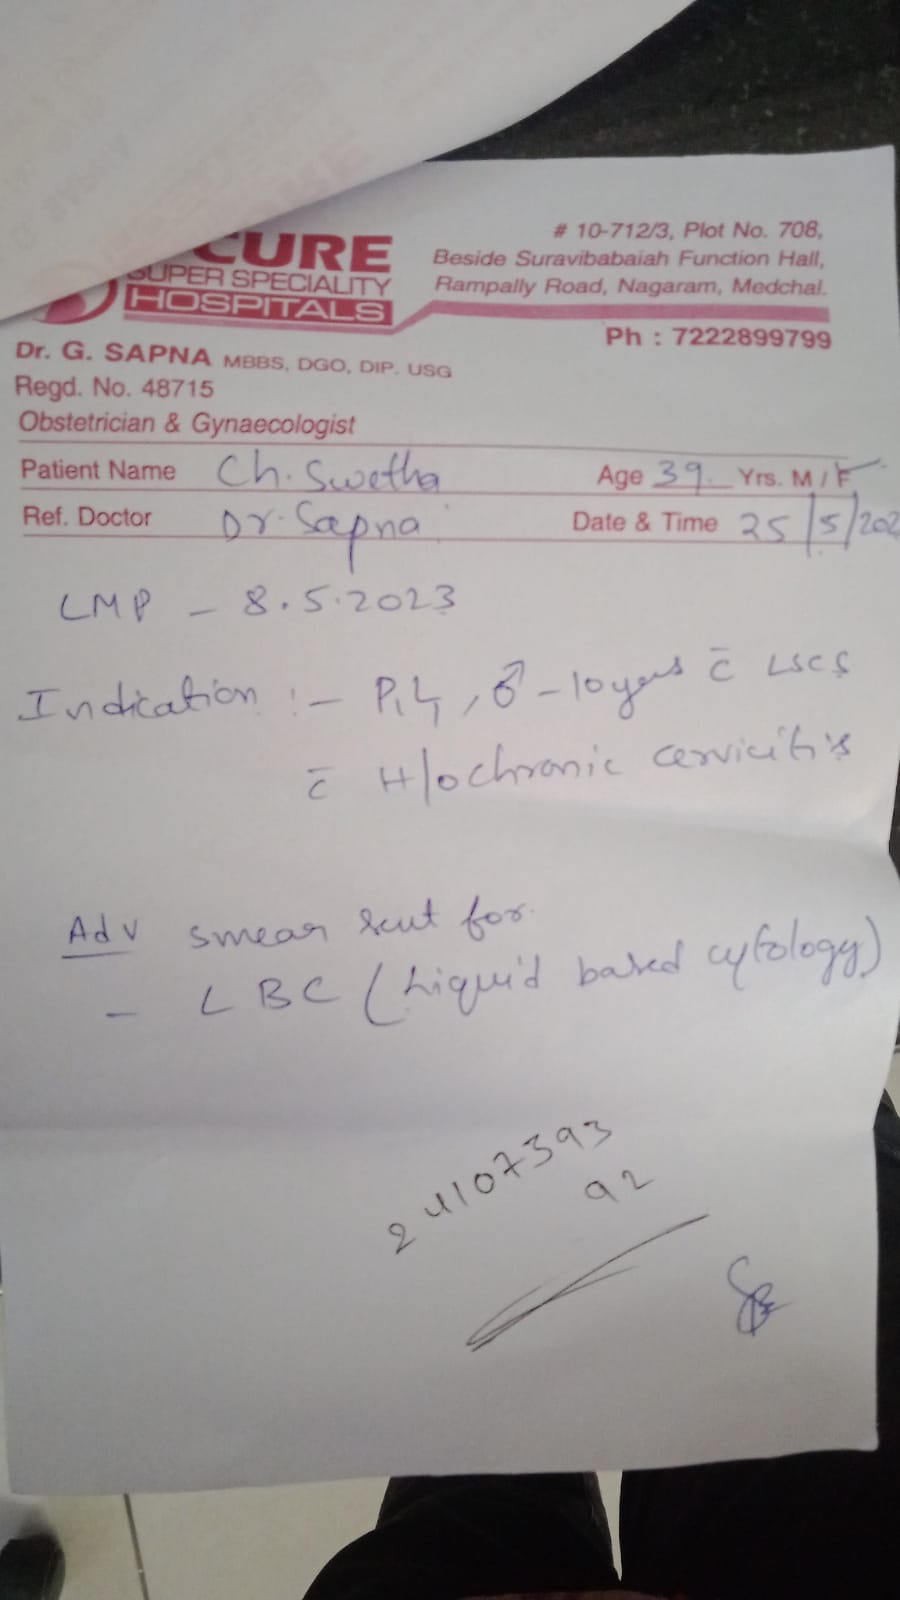 CURE
SUPER SPECIALITY
HOSPITALS
# 10-712/3, Plot No. 708,
Beside Suravibabaiah Function Hall,
Rampally Road, Nagaram, Medchal.
Ph : 7222899799
Dr. G. SAPNA MBBS, DGO, DIP. USG
Regd. No. 48715
Obstetrician & Gynaecologist
Patient Name Ch. Swetha Age 39 Yrs. M / F
Ref. Doctor Dr. Sapna Date & Time 25/5/202
LMP - 8.5.2023
Indication :- P1L1, ♂ - 10 years c̄ LSCS
c̄ H/o chronic cervicitis
Adv smear sent for
- LBC (Liquid based cytology)
24107393
92